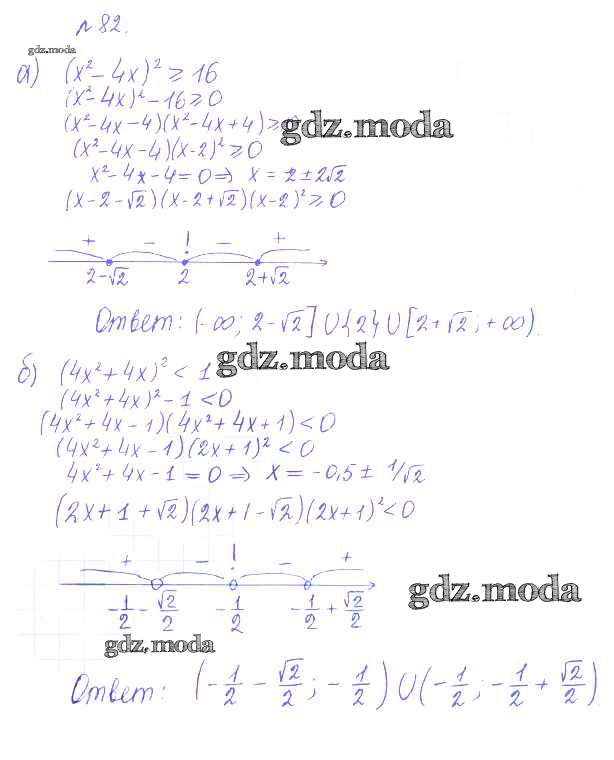 № 82.
gdz.moda
а) (x² - 4x)² ≥ 16
(x² - 4x)² - 16 ≥ 0
(x² - 4x - 4)(x² - 4x + 4) ≥ 0
gdz.moda
(x² - 4x - 4)(x - 2)² ≥ 0
x² - 4x - 4 = 0 ⇒ x = 2 ± 2√2
(x - 2 - √2)(x - 2 + √2)(x - 2)² ≥ 0
+ - ! - +
2-√2 2 2+√2
Ответ: (-∞; 2-√2] U {2} U [2+√2; +∞).
gdz.moda
б) (4x² + 4x)² < 1
(4x² + 4x)² - 1 < 0
(4x² + 4x - 1)(4x² + 4x + 1) < 0
(4x² + 4x - 1)(2x + 1)² < 0
4x² + 4x - 1 = 0 ⇒ x = -0,5 ± 1/√2
(2x + 1 + √2)(2x + 1 - √2)(2x + 1)² < 0
+ - ! - +
gdz.moda
-1/2 - √2/2 -1/2 -1/2 + √2/2
gdz.moda
Ответ: (-1/2 - √2/2; -1/2) U (-1/2; -1/2 + √2/2)